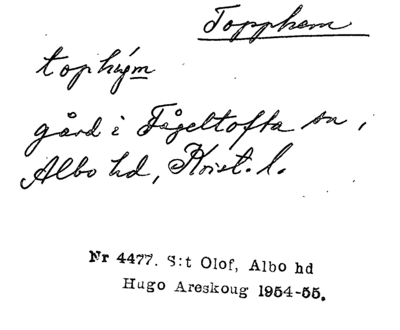 Topphem
tophým
gård i Fågeltofta sn,
Albo hd, Krist. l.
Nr 4477. S:t Olof, Albo hd
Hugo Areskoug 1954-55.